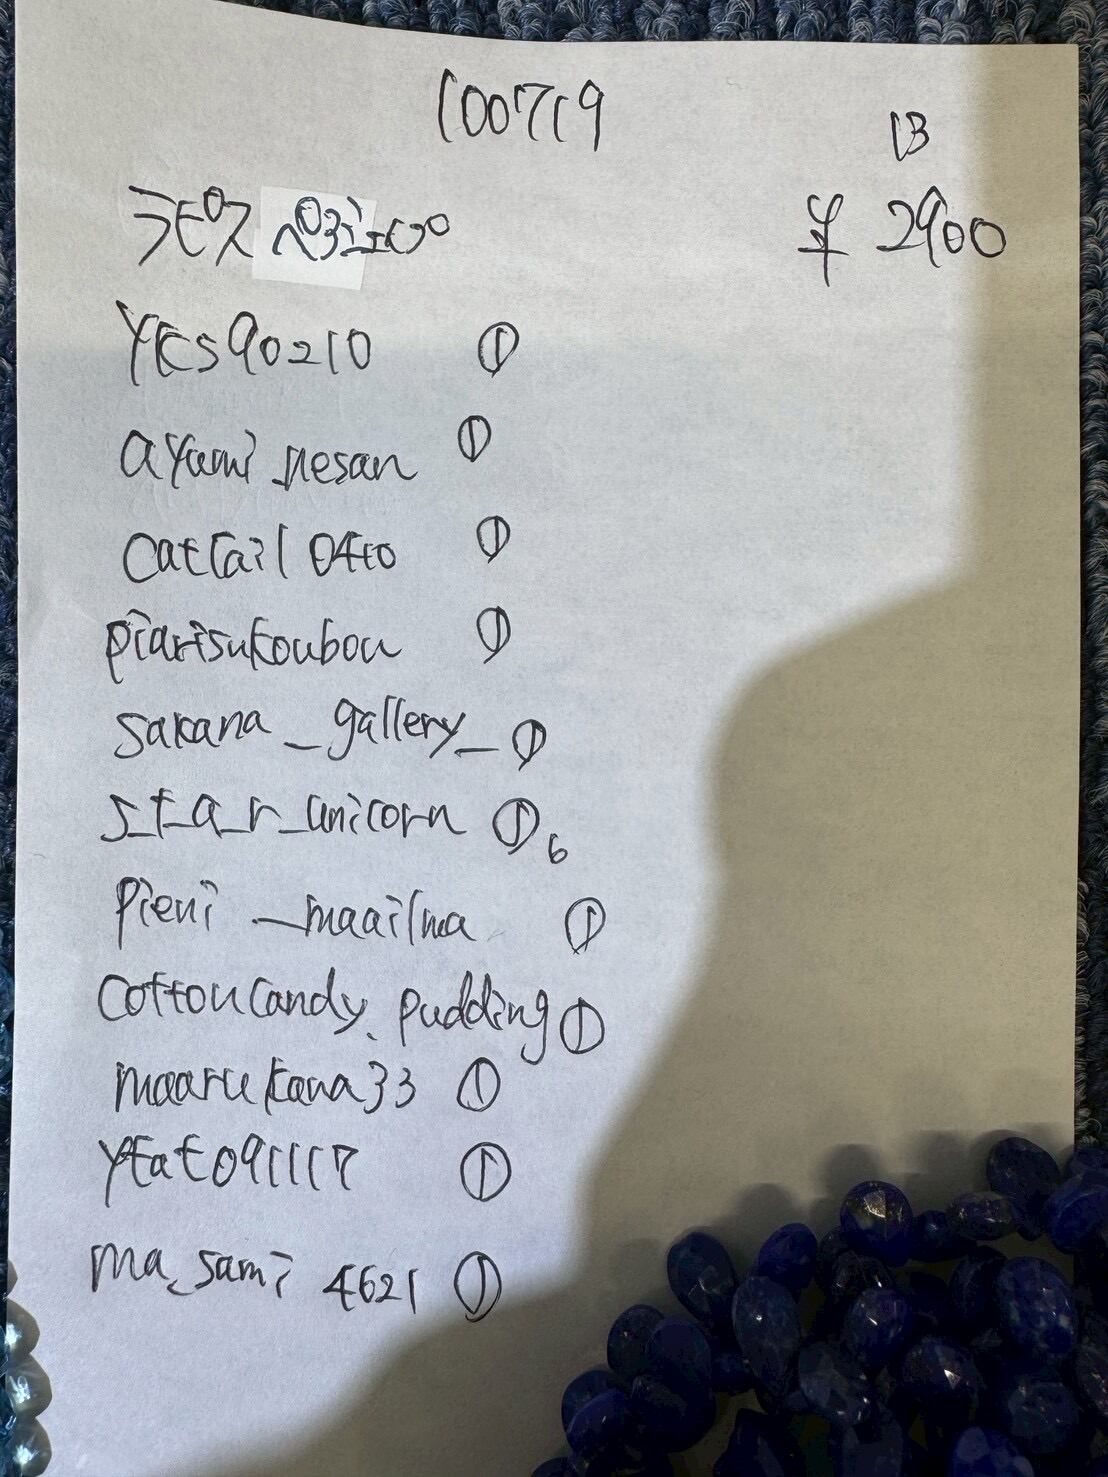 100719
13
ラピス ¥2900
YKs90210 ①
ayumi_nesan ①
cattail0410 ①
piarisukoubou ①
sakana_gallery_ ①
s_t_a_r_unicorn ① 6
pieni_maailma ①
cottoncandy.pudding ①
maarukana33 ①
ytat091117 ①
ma_sami 4621 ①